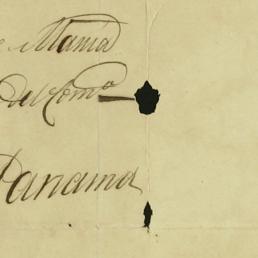 e Maria
del Com^o
Panama